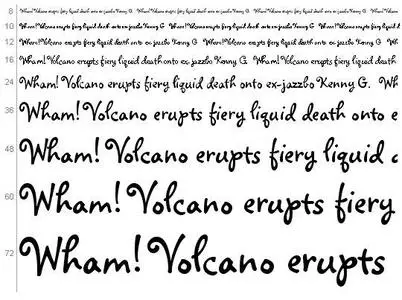 8 Wham! Volcano erupts fiery liquid death onto ex-jazzbo Kenny G. Wham! Volcano erupts fiery liquid death onto ex-jazzbo Kenny G. Wham! Volcano
10 Wham! Volcano erupts fiery liquid death onto ex-jazzbo Kenny G. Wham! Volcano erupts fiery liquid death onto ex-jazzbo Kenny G.
12 Wham! Volcano erupts fiery liquid death onto ex-jazzbo Kenny G. Wham! Volcano erupts fiery liquid death onto ex-jazzbo Kenny G. Wh
Wham! Volcano erupts fiery liquid death onto ex-jazzbo Kenny G. Wham! Volcano erupts fiery liquid death
24 Wham! Volcano erupts fiery liquid death onto ex-jazzbo Kenny G. Wh
36 Wham! Volcano erupts fiery liquid death onto e
48 Wham! Volcano erupts fiery liquid
60 Wham! Volcano erupts fiery
72 Wham! Volcano erupts